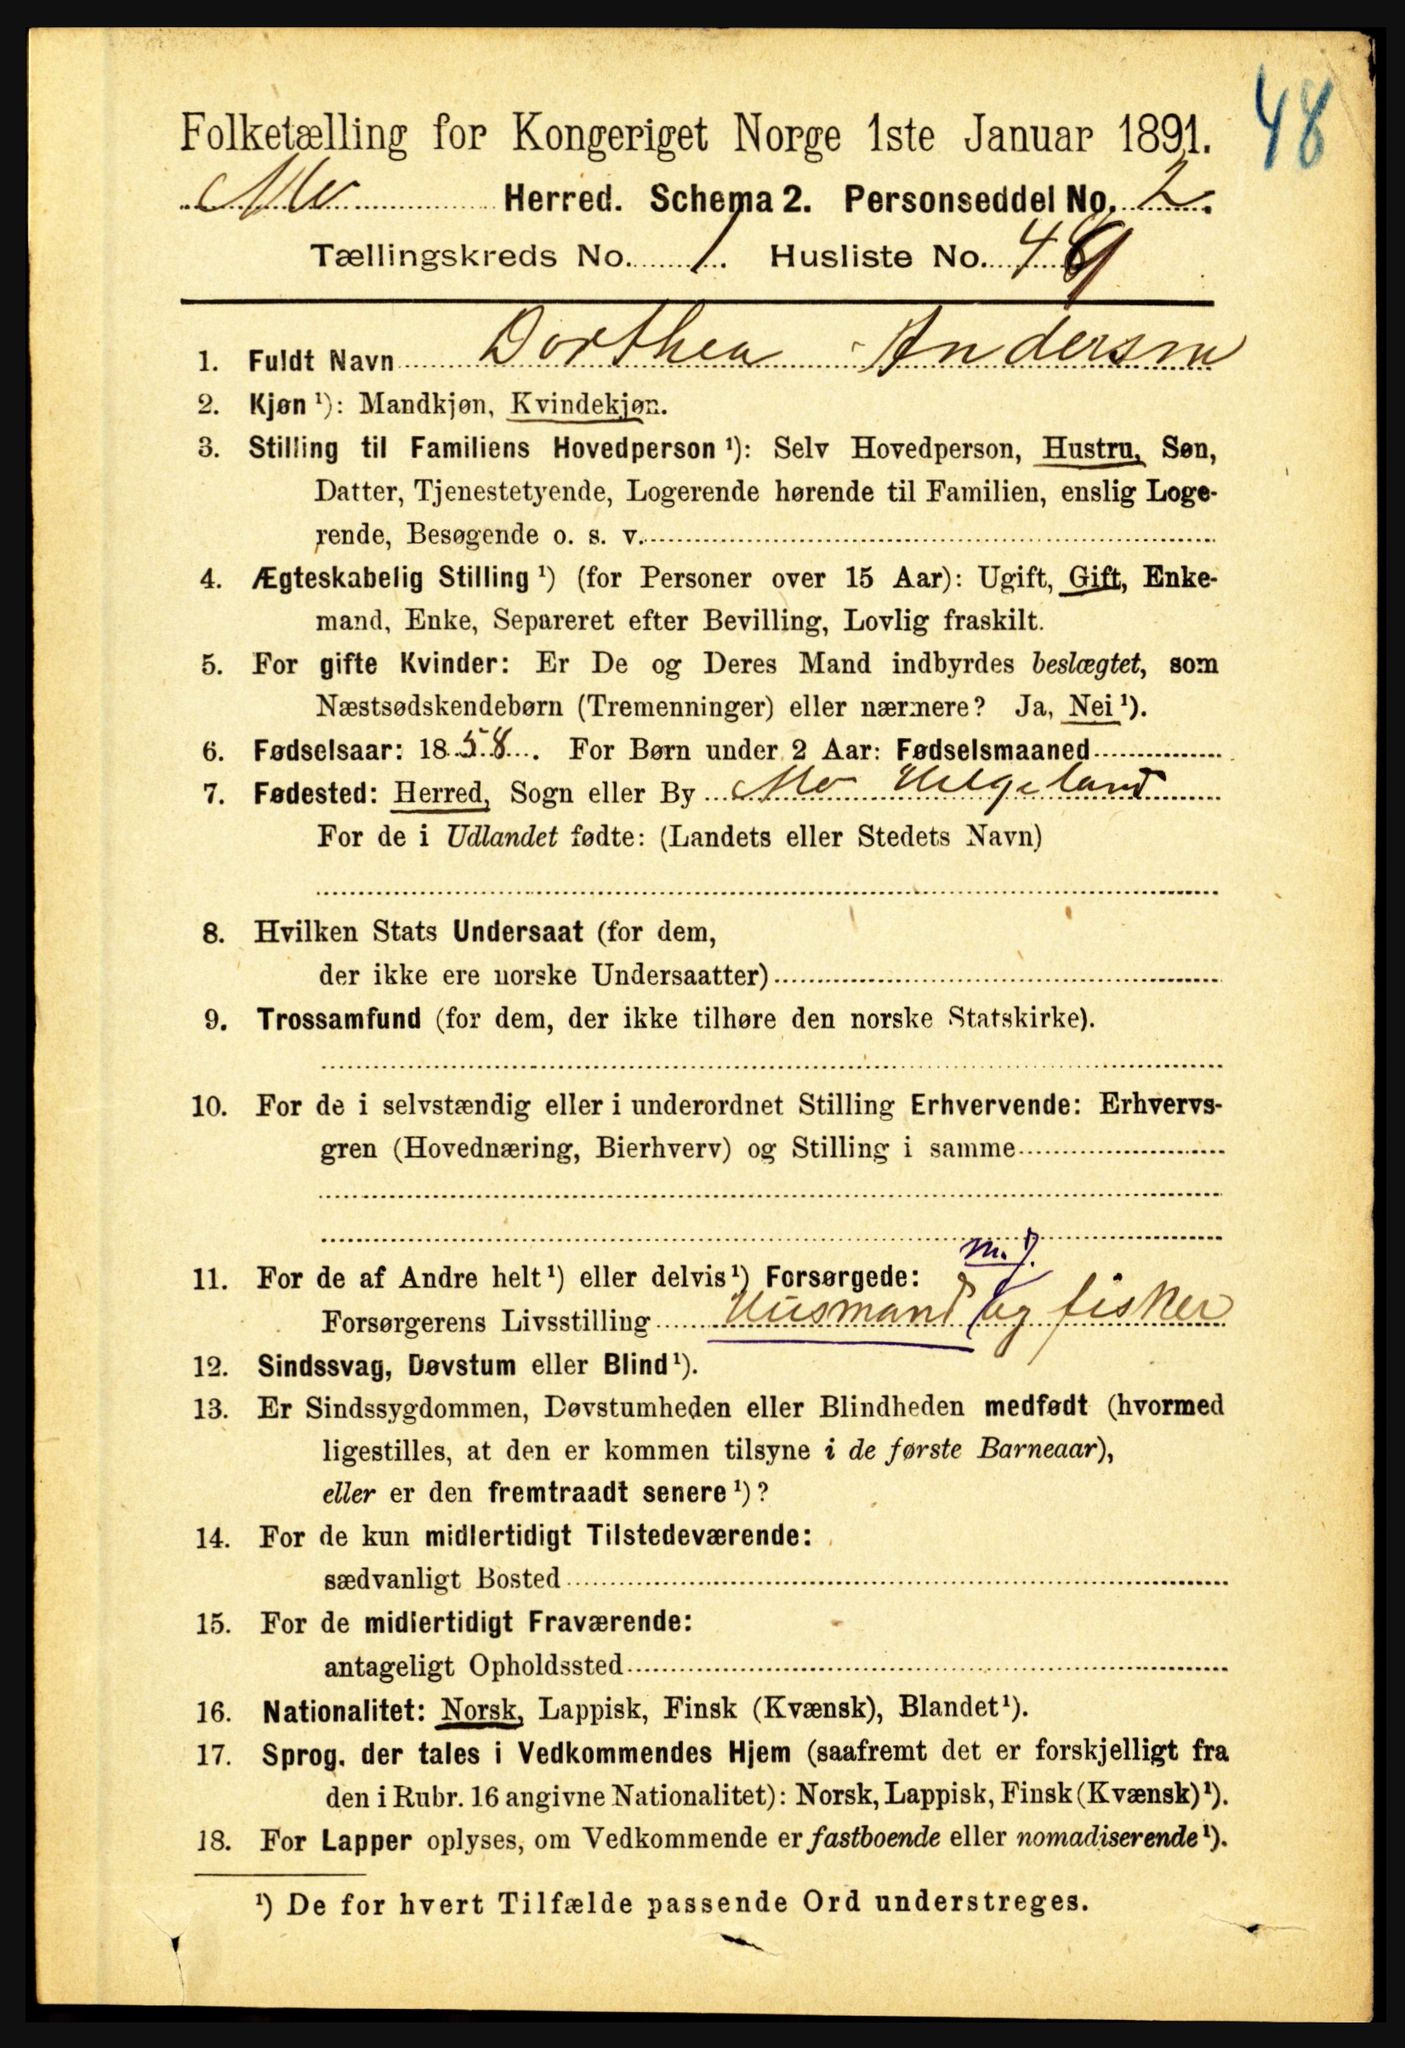 48
Folketælling for Kongeriget Norge 1ste Januar 1891.
Mo Herred. Schema 2. Personseddel No. 2.
Tællingskreds No. 1. Husliste No. 49
1. Fuldt Navn Dorthea Andersen
2. Kjøn ¹): Mandkjøn, Kvindekjøn.
3. Stilling til Familiens Hovedperson ¹): Selv Hovedperson, Hustru, Søn,
Datter, Tjenestetyende, Logerende hørende til Familien, enslig Loge-
rende, Besøgende o. s. v.
4. Ægteskabelig Stilling ¹) (for Personer over 15 Aar): Ugift, Gift, Enke-
mand, Enke, Separeret efter Bevilling, Lovlig fraskilt.
5. For gifte Kvinder: Er De og Deres Mand indbyrdes beslægtet, som
Næstsødskendebørn (Tremenninger) eller nærmere? Ja, Nei ¹).
6. Fødselsaar: 1858. For Børn under 2 Aar: Fødselsmaaned
7. Fødested: Herred, Sogn eller By Mo Helgeland
For de i Udlandet fødte: (Landets eller Stedets Navn)
8. Hvilken Stats Undersaat (for dem,
der ikke ere norske Undersaatter)
9. Trossamfund (for dem, der ikke tilhøre den norske Statskirke).
10. For de i selvstændig eller i underordnet Stilling Erhvervende: Erhvervs-
gren (Hovednæring, Bierhverv) og Stilling i samme
m. J.
11. For de af Andre helt ¹) eller delvis ¹) Forsørgede:
Forsørgerens Livsstilling Husmand og fisker
12. Sindssvag, Døvstum eller Blind ¹).
13. Er Sindssygdommen, Døvstumheden eller Blindheden medfødt (hvormed
ligestilles, at den er kommen tilsyne i de første Barneaar),
eller er den fremtraadt senere ¹)?
14. For de kun midlertidigt Tilstedeværende:
sædvanligt Bosted
15. For de midlertidigt Fraværende:
antageligt Opholdssted
16. Nationalitet: Norsk, Lappisk, Finsk (Kvænsk), Blandet ¹).
17. Sprog, der tales i Vedkommendes Hjem (saafremt det er forskjelligt fra
den i Rubr. 16 angivne Nationalitet): Norsk, Lappisk, Finsk (Kvænsk) ¹).
18. For Lapper oplyses, om Vedkommende er fastboende eller nomadiserende ¹).
¹) De for hvert Tilfælde passende Ord understreges.